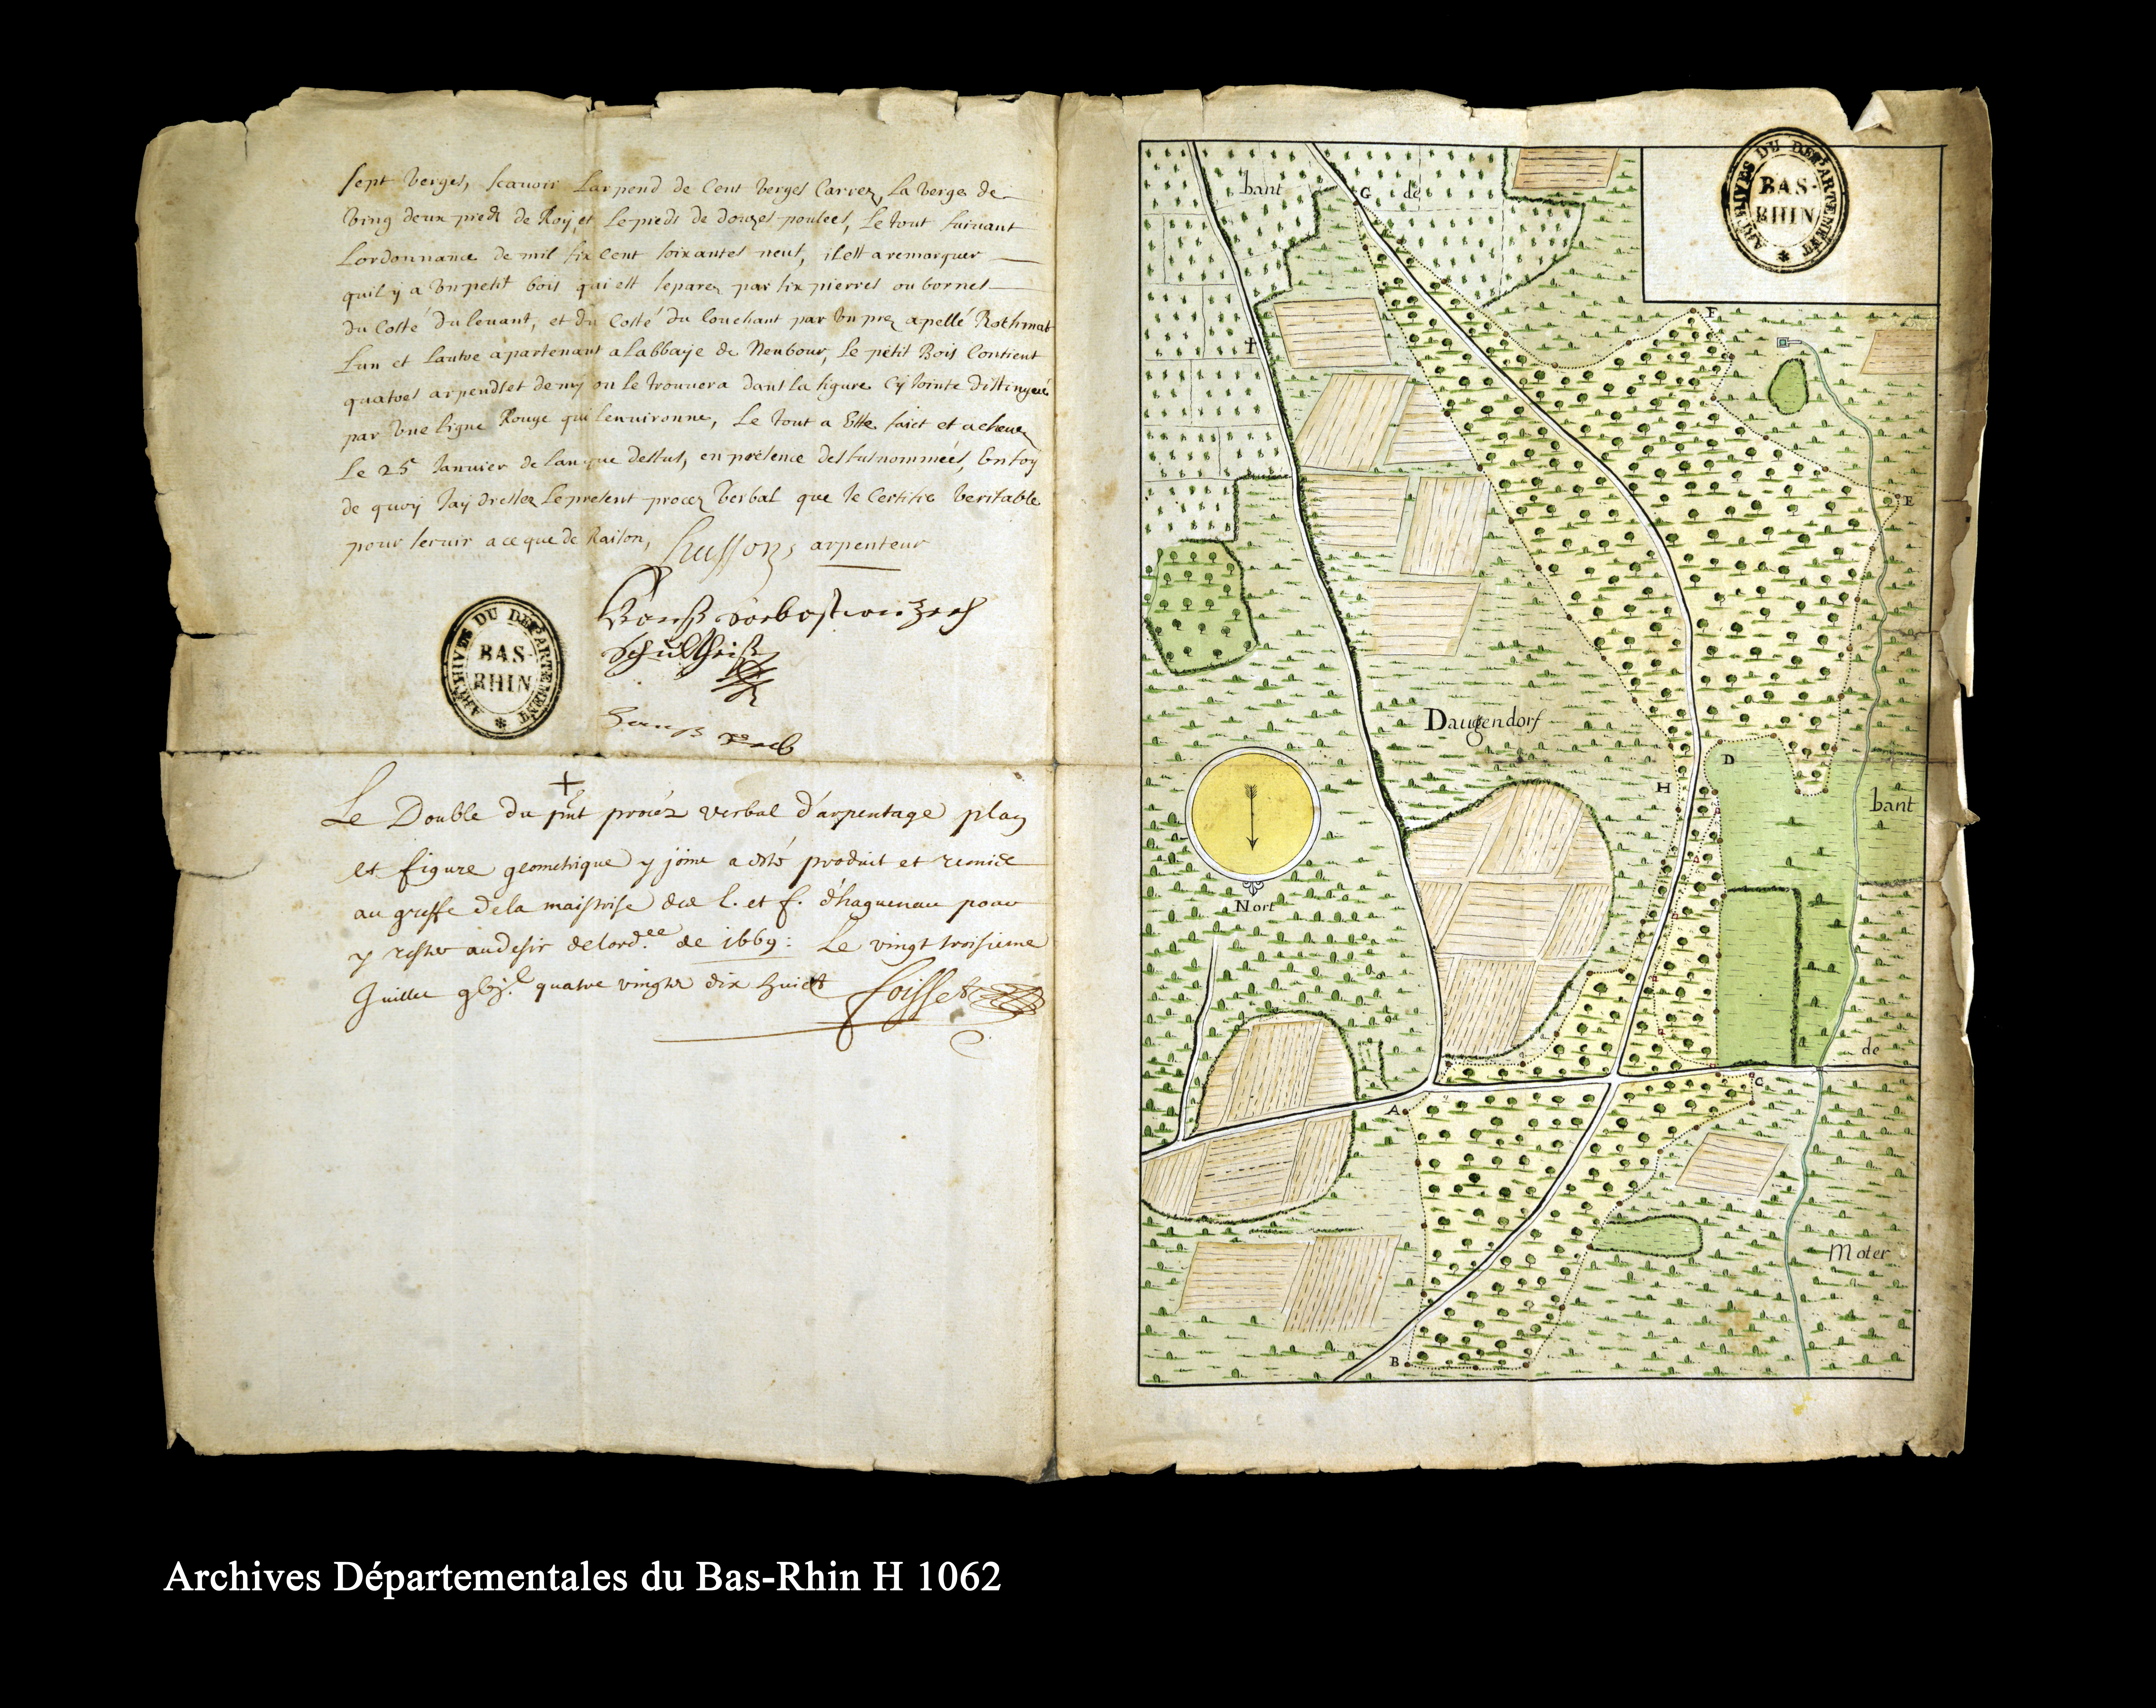 sept Verges, scauoir Larpend de Cent Verges Carrez, La Verge de
Ving deux pieds de Roy, et Le pieds de douzes poulces, Le tout suiuant
Lordonnance de mil six Cent soixantes neuf, il est a remarquer
quil y a Vn petit bois qui est separez par six pierres ou bornes
du Costé du leuant, et du Costé du Couchant par Vn prez apellé Rothmat
Lun et Lautre apartenant a Labbaije de Neubour, Le petit Bois Contient
quatres arpends et demy on le trouuera dans la figure Cy Jointe distinguée
par Vne Ligne Rouge qui lenuironne, Le tout a Este faict et acheuez
Le 25 Januier de Lan que dessus, en présence des susnommées, En foy
de quoy Jay dressez Le present procez Verbal que Je Certifie Veritable
pour seruir a ce que de Raison, husson, arpenteur
Schultheiß
ARCHIVES DU DEPARTEMENT
BAS-
RHIN
Le Double du pnt procéz verbal d'arpentage plan
et figure geometrique y joint a esté produict et remise
au greffe de la maistrise des E. et f. d'haguenau pour
y rester au desir de lord.ce de 1669: Le vingt troisieme
Juillet quatre vingts dix huict foisset
bant
G
de
ARCHIVES DU DEPARTEMENT
BAS-
RHIN
F
E
Daugendorf
D
H
bant
Nort
de
C
A
Moter
B
Archives Départementales du Bas-Rhin H 1062